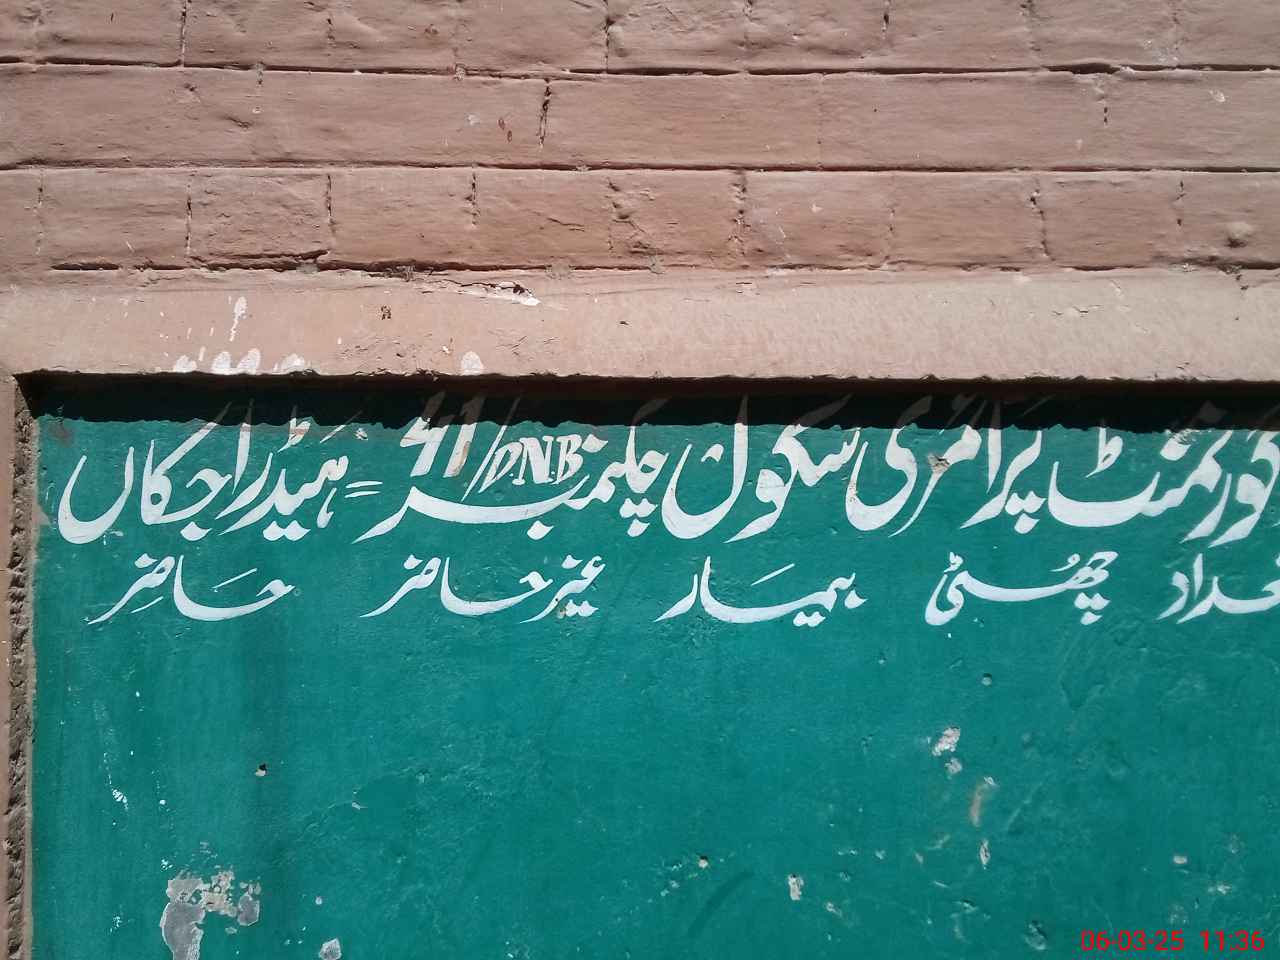 گورنمنٹ پرائمری سکول چکنمبر 41/DNB = ہیڈراجکاں
تعداد چھٹی بیمار غیرحاضر حاضر
06-03-25 11:36